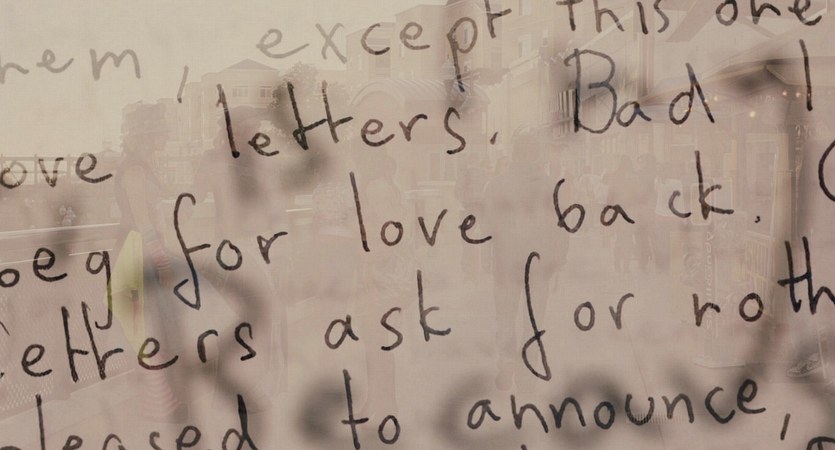 hem, except this one
ove letters. Bad l
beg for love back. G
letters ask for noth
pleased to announce,